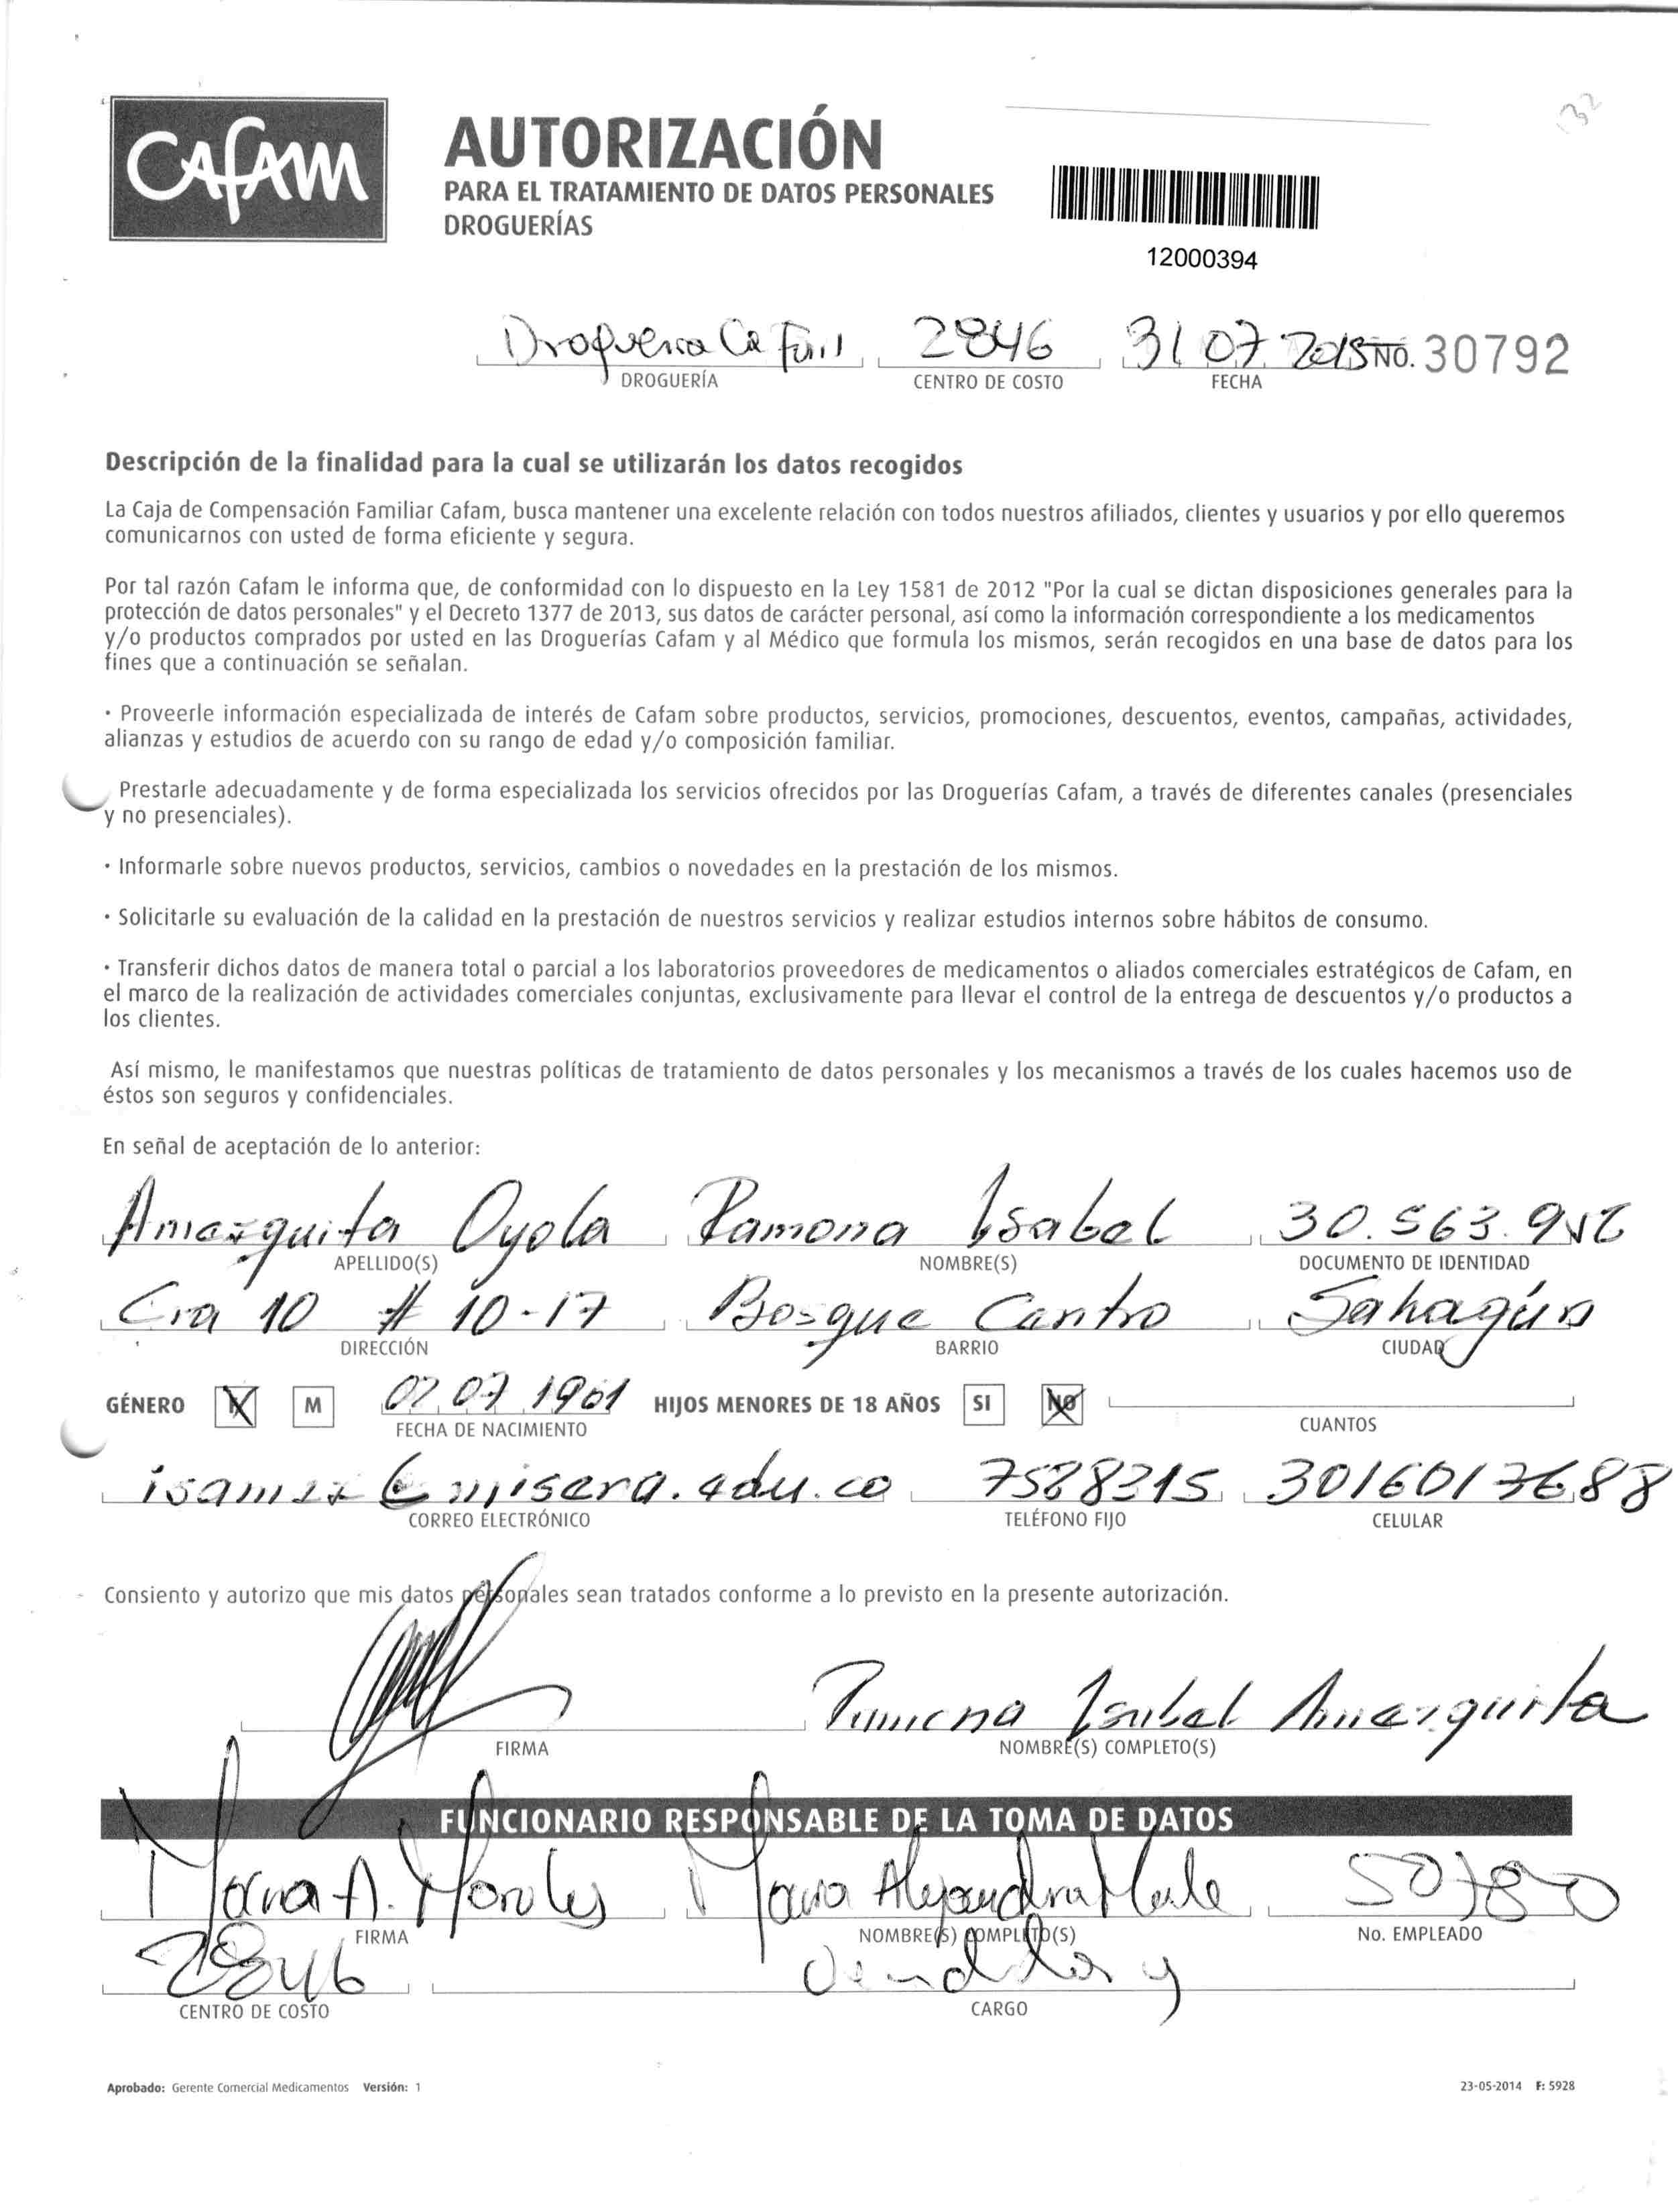 132
CAFAM
AUTORIZACIÓN
PARA EL TRATAMIENTO DE DATOS PERSONALES
DROGUERÍAS
12000394
Drogueria 2846 31 07 2015 NO. 30792
DROGUERÍA CENTRO DE COSTO FECHA
Descripción de la finalidad para la cual se utilizarán los datos recogidos
La Caja de Compensación Familiar Cafam, busca mantener una excelente relación con todos nuestros afiliados, clientes y usuarios y por ello queremos
comunicarnos con usted de forma eficiente y segura.
Por tal razón Cafam le informa que, de conformidad con lo dispuesto en la Ley 1581 de 2012 "Por la cual se dictan disposiciones generales para la
protección de datos personales" y el Decreto 1377 de 2013, sus datos de carácter personal, así como la información correspondiente a los medicamentos
y/o productos comprados por usted en las Droguerías Cafam y al Médico que formula los mismos, serán recogidos en una base de datos para los
fines que a continuación se señalan.
• Proveerle información especializada de interés de Cafam sobre productos, servicios, promociones, descuentos, eventos, campañas, actividades,
alianzas y estudios de acuerdo con su rango de edad y/o composición familiar.
Prestarle adecuadamente y de forma especializada los servicios ofrecidos por las Droguerías Cafam, a través de diferentes canales (presenciales
y no presenciales).
• Informarle sobre nuevos productos, servicios, cambios o novedades en la prestación de los mismos.
• Solicitarle su evaluación de la calidad en la prestación de nuestros servicios y realizar estudios internos sobre hábitos de consumo.
• Transferir dichos datos de manera total o parcial a los laboratorios proveedores de medicamentos o aliados comerciales estratégicos de Cafam, en
el marco de la realización de actividades comerciales conjuntas, exclusivamente para llevar el control de la entrega de descuentos y/o productos a
los clientes.
Así mismo, le manifestamos que nuestras políticas de tratamiento de datos personales y los mecanismos a través de los cuales hacemos uso de
éstos son seguros y confidenciales.
En señal de aceptación de lo anterior:
Amezquita Oyola Ramona Isabel 30.563.
APELLIDO(S) NOMBRE(S) DOCUMENTO DE IDENTIDAD
Cra 10 # 10-17 Bosque Centro Sahagún
DIRECCIÓN BARRIO CIUDAD
GÉNERO F M 07 HIJOS MENORES DE 18 AÑOS SI NO
FECHA DE NACIMIENTO CUANTOS
7588315 3016017688
CORREO ELECTRÓNICO TELÉFONO FIJO CELULAR
Consiento y autorizo que mis datos personales sean tratados conforme a lo previsto en la presente autorización.
Ramona Isabel Amezquita
FIRMA NOMBRE(S) COMPLETO(S)
FUNCIONARIO RESPONSABLE DE LA TOMA DE DATOS
Maria A. Morales Maria Alejandra
FIRMA NOMBRE(S) COMPLETO(S) No. EMPLEADO
2846
CENTRO DE COSTO CARGO
Aprobado: Gerente Comercial Medicamentos Versión: 1 23-05-2014 F: 5928